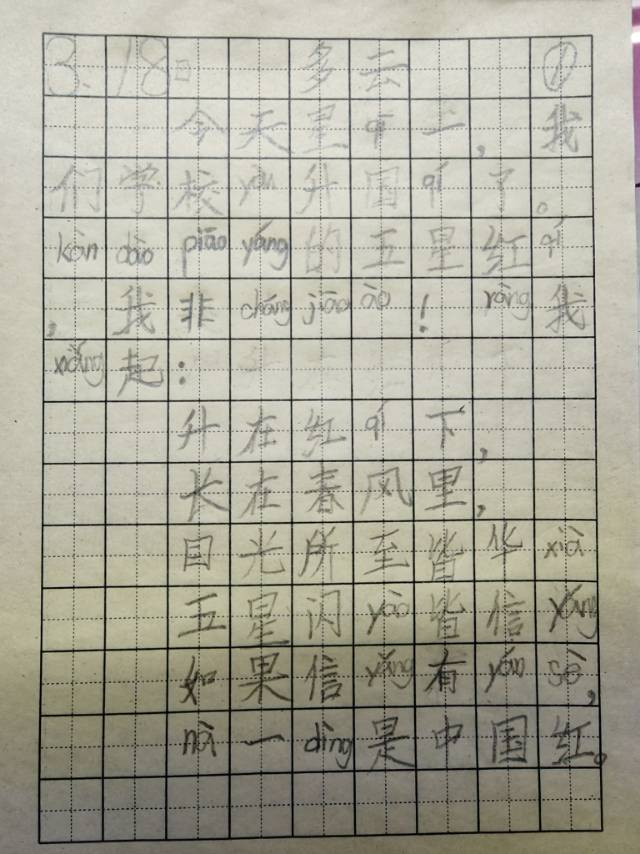 3.18日 多云 ①
今天星qī一，我
们学校yòu升国qí了。
kàn dào piāo yáng的五星红qí
，我非cháng jiāo ào！ràng我
xiǎng起：
升在红qí下，
长在春风里，
目光所至皆华xià
五星闪yào皆信yǎng
如果信yǎng有yán sè，
nà一dìng是中国红。